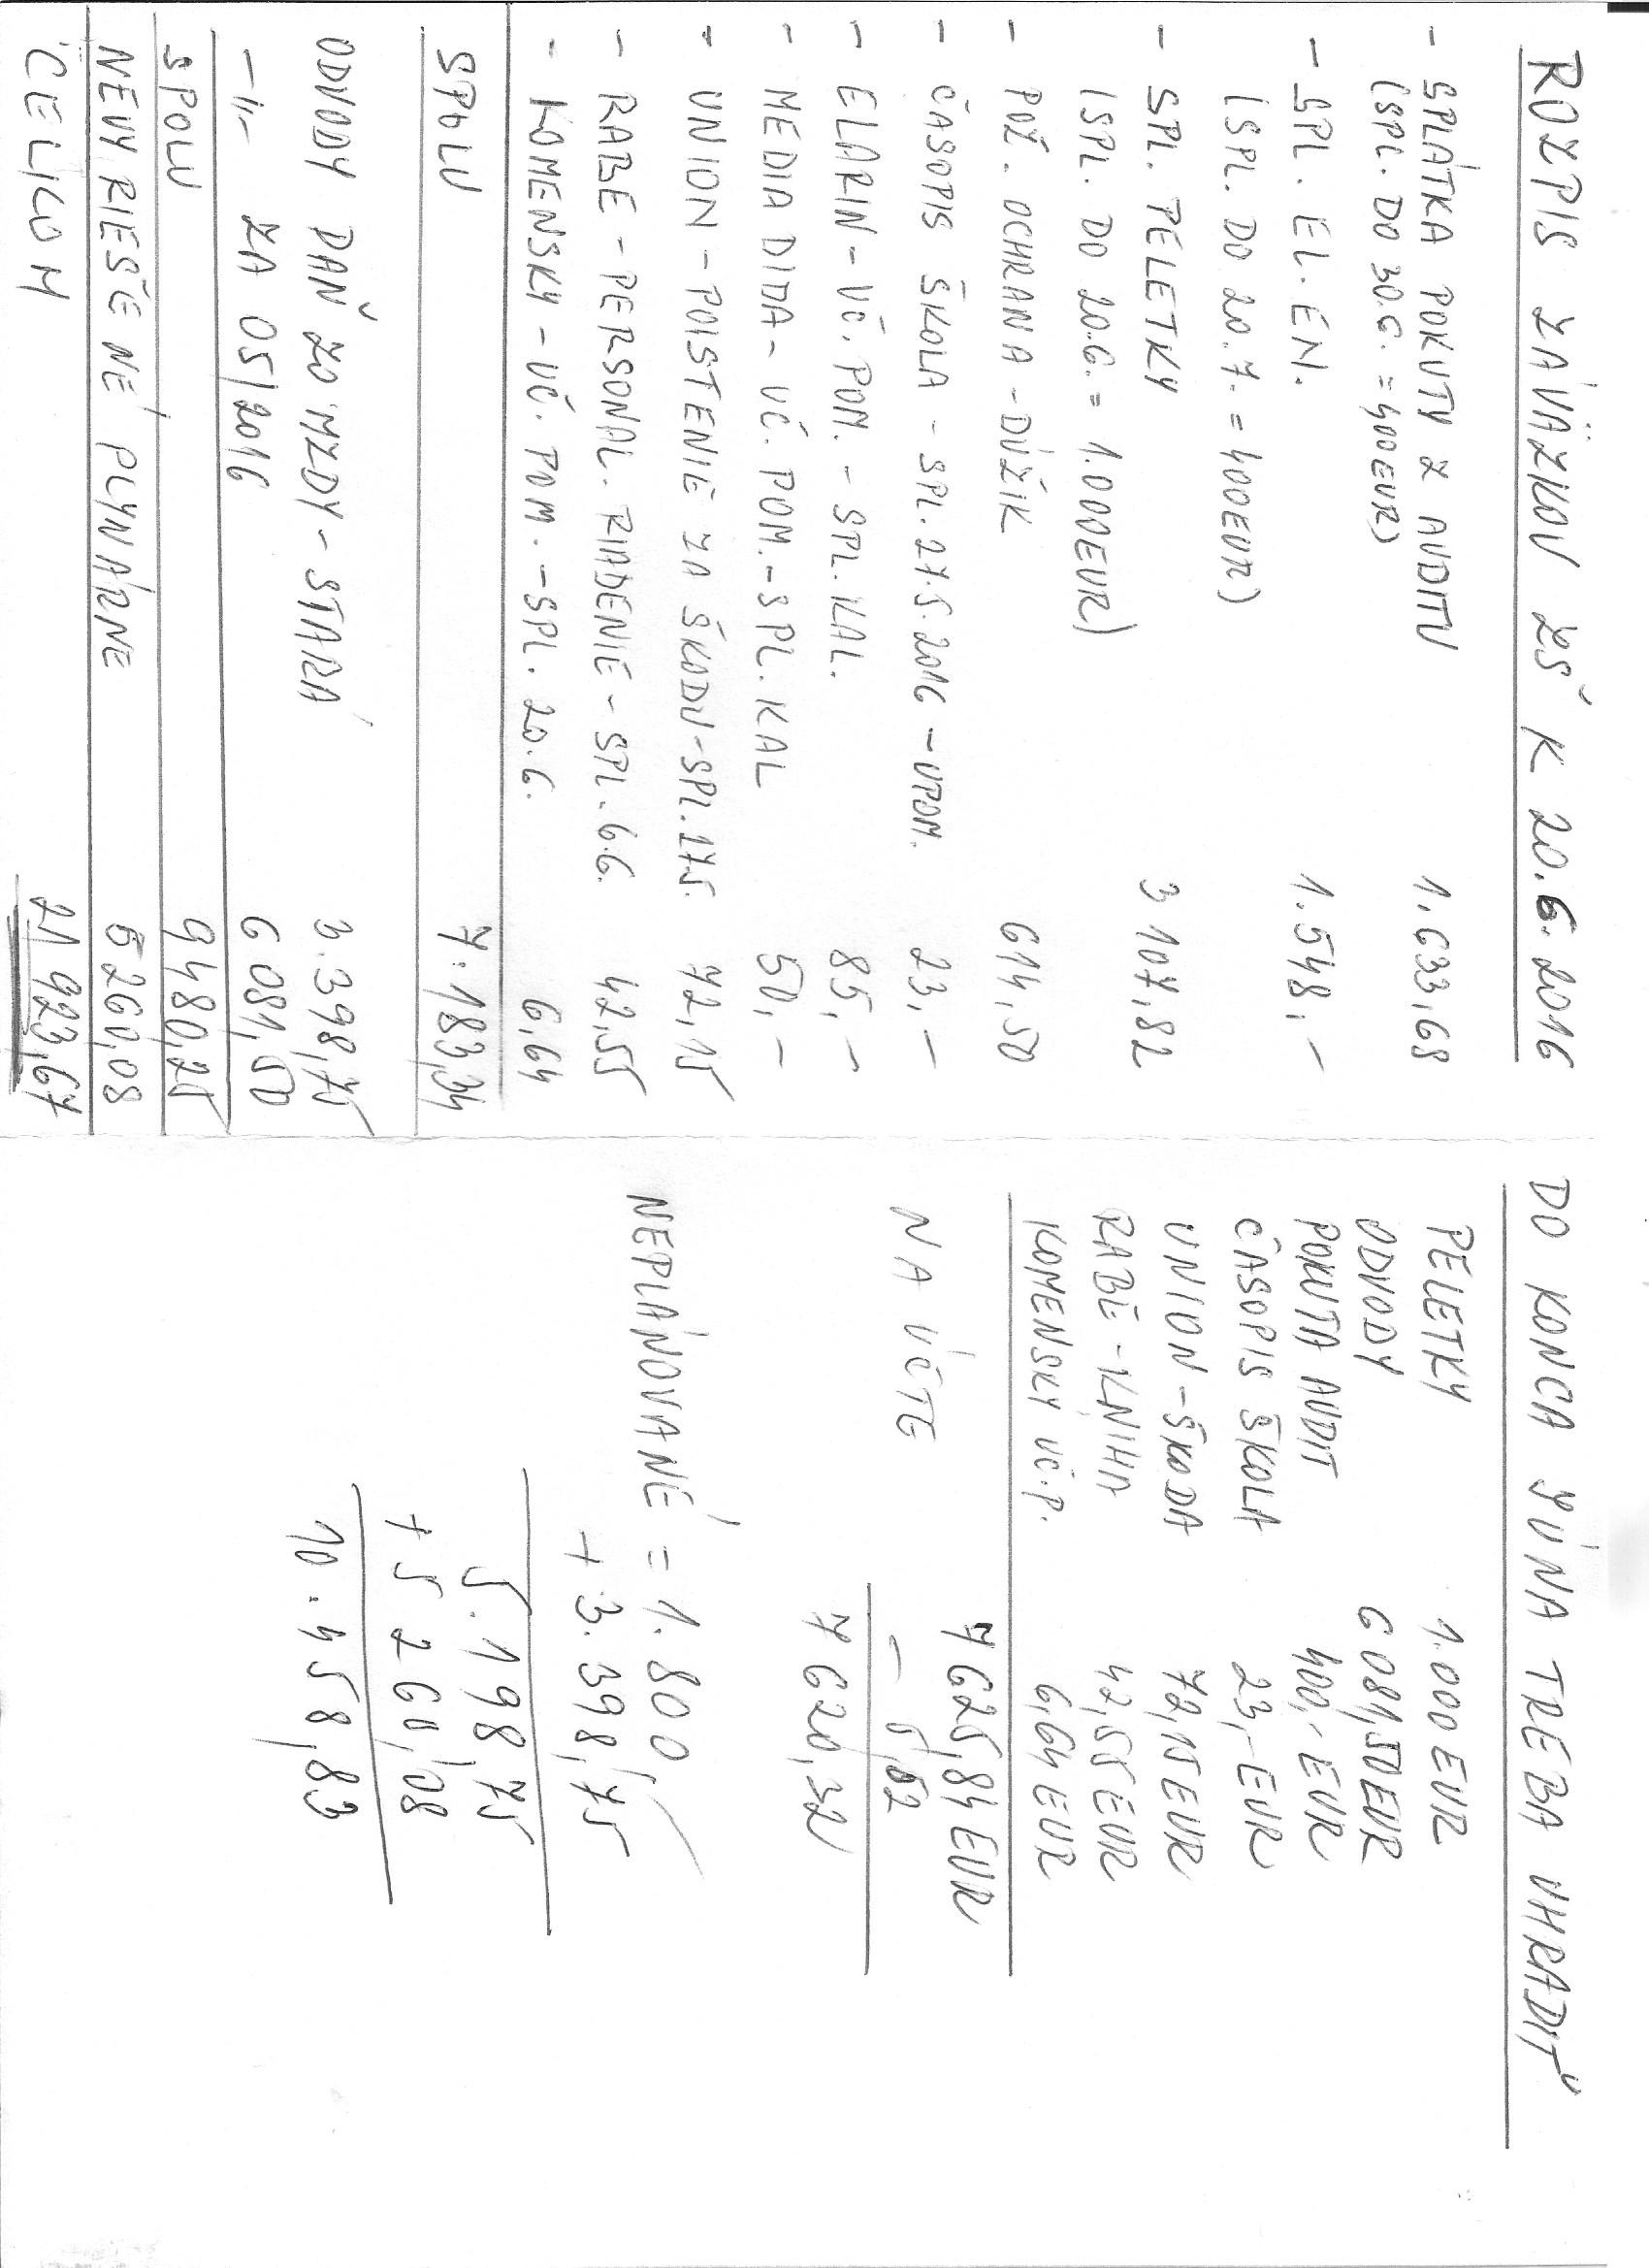 ROZPIS ZÁVÄZKOV ZŠ K 20.6.2016
- SPLÁTKA POKUTY Z AUDITU 1.633,68
(SPL. DO 30.6. = 400EUR)
- SPL. EL. EN. 1.548,-
(SPL. DO 20.7. = 400EUR)
- SPL. PELETKY 3 107,82
(SPL. DO 20.6. = 1.000EUR)
- POŽ. OCHRANA - DLŽIK 614,50
- ČASOPIS ŠKOLA - SPL. 27.5.2016 - UPOM. 23,-
- ELARIN - UČ. POM. - SPL. KAL. 85,-
- MEDIA DIDA - UČ. POM. - SPL. KAL 50,-
- UNION - POISTENIE ZA ŠKODU - SPL. 17.5. 72,15
- RABE - PERSONAL. RIADENIE - SPL. 6.6. 42,55
- KOMENSKY - UČ. POM. - SPL. 20.6. 6,64
SPOLU 7.183,34
ODVODY DAŇ ZO MZDY - STARÁ 3.398,75
-"- ZA 05/2016 6 081,50
SPOLU 9 480,25
NEVYRIEŠENÉ PLYNÁRNE 5 260,08
CELKOM 21 923,67
DO KONCA JÚNA TREBA UHRADIŤ
PELETKY 1.000 EUR
ODVODY 6 081,50EUR
POKUTA AUDIT 400,- EUR
ČASOPIS ŠKOLA 23,- EUR
UNION - ŠKODA 72,15EUR
RABE - KNIHA 42,55 EUR
KOMENSKY UČ.P. 6,64 EUR
7 625,84 EUR
NA ÚČTE - 5,52
7 620,32
NEPLÁNOVANÉ = 1.800
+ 3.398,75
5.198,75
+ 5 260,08
10.458,83